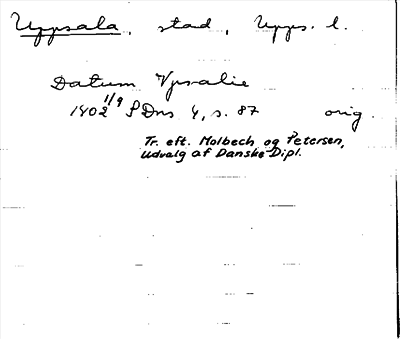 Uppsala, stad, Upps. l.
Datum Vpsalie
1402 1/9 SDns 4, s. 87 orig.
Tr. eft. Molbech og Petersen,
Udvalg af Danske Dipl.